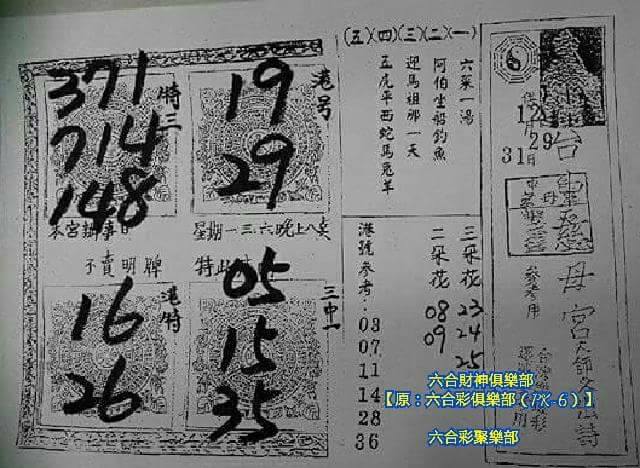 (五)(四)(三)(二)(一)
六菜一湯
阿伯坐船釣魚
迎馬祖那一天
五虎平西蛇馬兔羊
371
714
148
特三
19
29
港号
本宮辦事日
星期一三六晚上八
不賣明牌
16
26
港特
05
15
35
三中一
港號參考:
03
07
11
14
28
36
二朵花
08
09
三朵花
23
24
25
12月29
31日
參考用
母宮
六合財神俱樂部
【原:六合彩俱樂部(PK-6)】
六合彩聚樂部